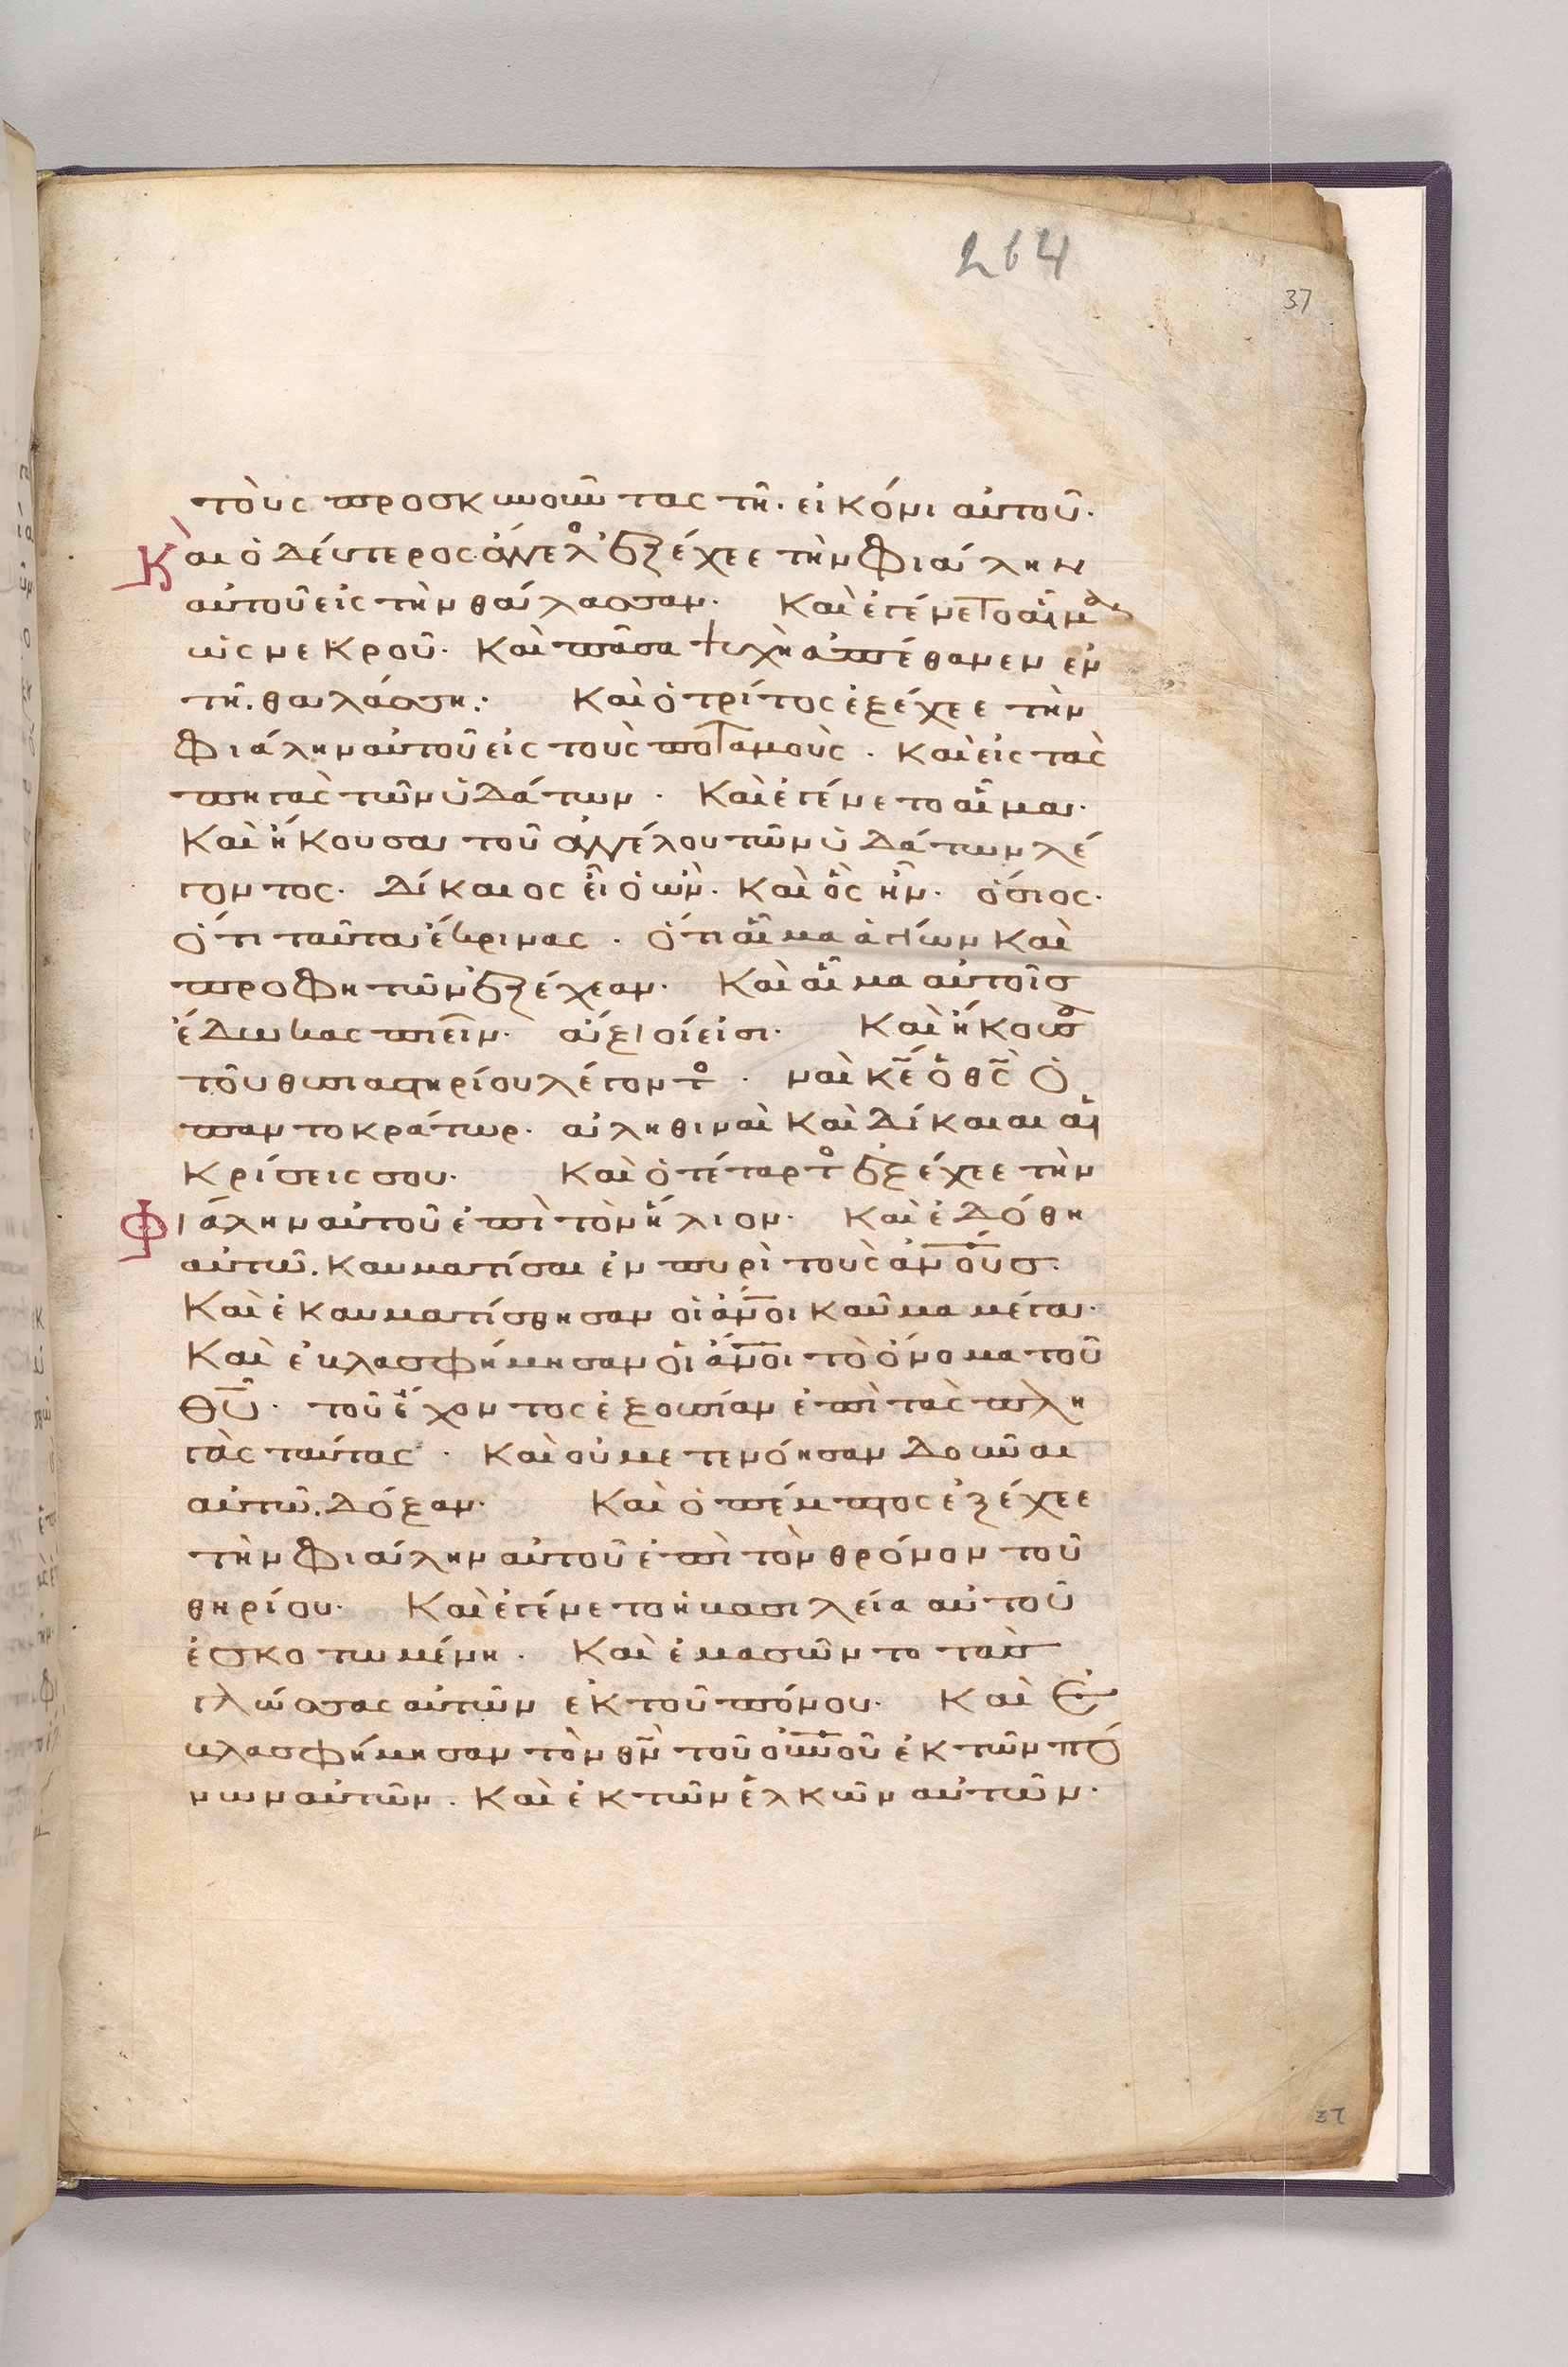 264
37
τοὺς προσκυνοῦντας τῆ. εἰκόνι αὐτοῦ·
Καὶ ὁ δέυτερος ἄγγελο̅ς ἐξέχεε τὴν φιάλην
αὐτοῦ εἰς τὴν θάλασσαν· Καὶ ἐγένετο αἷμα
ὡς νεκροῦ· Καὶ πᾶσα ψυχὴ ἀπέθανεν ἐν
τῆ. θαλάσση· Καὶ ὁ τρίτος ἐξέχεε τὴν
φιάλην αὐτοῦ εἰς τοὺς ποταμοὺς · Καὶ εἰς τὰς
πηγὰς τῶν ὑδάτων · Καὶ ἐγένετο αἷμα·
Καὶ ἤκουσα τοῦ ἀγγέλου τῶν ὑδάτων λέ
γοντος· Δίκαιος εἶ ὁ ὢν· Καὶ ὃς ἦν· ὅσιος·
Ὅτι ταῦτα ἔκρινας · Ὅτι αἷμα ἁγίων Καὶ
προφητῶν ἐξέχεαν· Καὶ αἷμα αὐτοῖς
ἔδωκας πιεῖν· ἄξιοί εἰσι· Καὶ ἤκουσα
τοῦ θυσιαστηρίου λέγοντο · ναὶ κ̅ε̅ ὁ θ̅ς̅ Ὁ
παντοκράτωρ· ἀληθιναὶ Καὶ Δίκαιαι αἱ
Κρίσεις σου· Καὶ ὁ τέταρτο ἐξέχεε τὴν
Φιάλην αὐτοῦ ἐπὶ τὸν ἥλιον· Καὶ ἐδόθη
αὐτῶ. Καυματίσαι ἐν πυρὶ τοὺς α̅ν̅ο̅υ̅ς·
Καὶ ἐκαυματίσθησαν οἱ α̅ν̅ο̅ι καῦμα μέγα·
Καὶ ἐβλασφήμησαν οἱ α̅ν̅ο̅ι τὸ ὄνομα τοῦ
Θ̅υ̅· τοῦ ἔχοντος ἐξουσίαν ἐπὶ τὰς πλη
γὰς ταύτας · Καὶ οὐ μετενόησαν Δοῦναι
αὐτῶ. Δόξαν· Καὶ ὁ πέμπτος ἐξέχεε
τὴν φιάλην αὐτοῦ ἐπὶ τὸν θρόνον τοῦ
θηρίου· Καὶ ἐγένετο ἡ βασιλεία αὐτοῦ
ἐσκοτωμένη · Καὶ ἐμασῶντο τὰς
γλώσσας αὐτῶν ἐκ τοῦ πόνου· Καὶ ἐ
βλασφήμησαν τὸν θ̅ν̅ τοῦ ο̅υ̅ν̅ο̅υ̅ ἐκ τῶν πό
νων αὐτῶν · Καὶ ἐκ τῶν ἑλκῶν αὐτῶν·
37